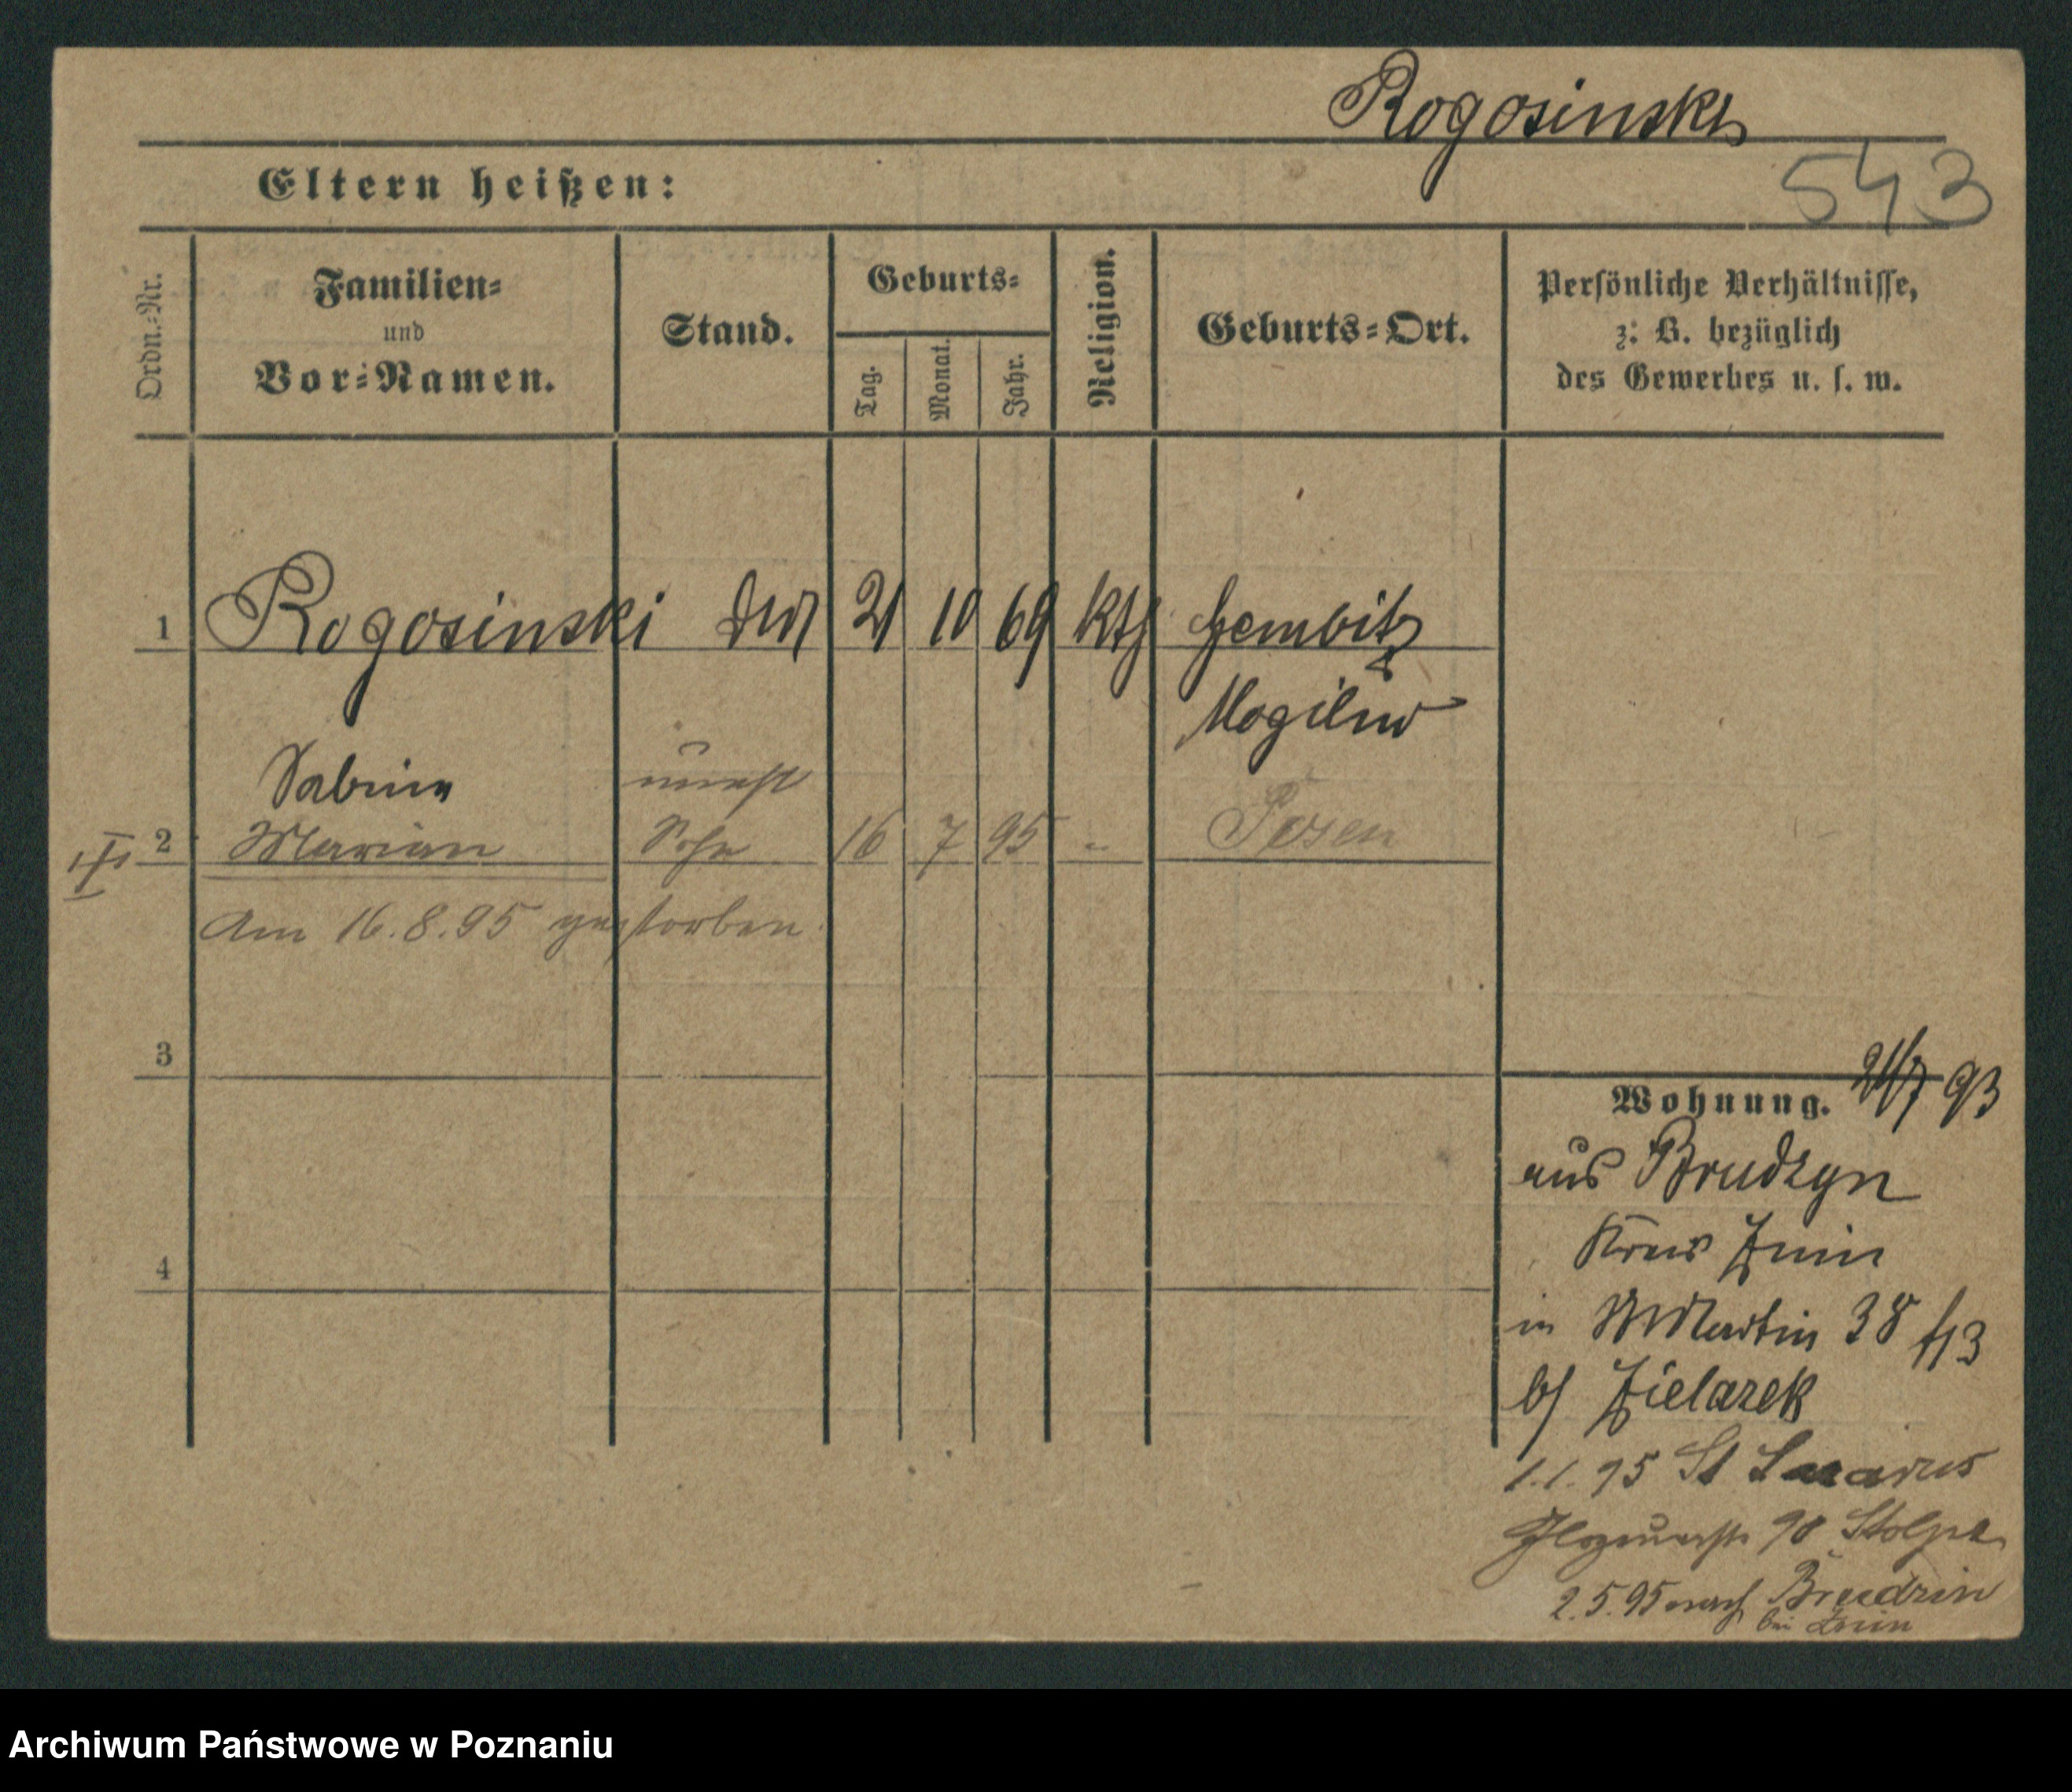 Rogosinski
543
Eltern heißen:
Ordn.-Nr.
Familien-
und
Vor-Namen.
Stand.
Geburts-
Tag.
Monat.
Jahr.
Religion.
Geburts-Ort.
Persönliche Verhältnisse,
z. B. bezüglich
des Gewerbes u. s. w.
1 Rogosinski 21 10 69 kth Gembitz
Mogilno
Sabina unehl
2 Marian Sohn 16 7 95 " Posen
Am 16.8.95 gestorben.
3
4
Wohnung. 21/7 93
aus Brudzyn
Kreis Znin
in Martin 38
b/ Zielazek
1.1.95 St Lazarus
98 Stolpe
2.5.95 nach Brudzin
bei Znin
Archiwum Państwowe w Poznaniu